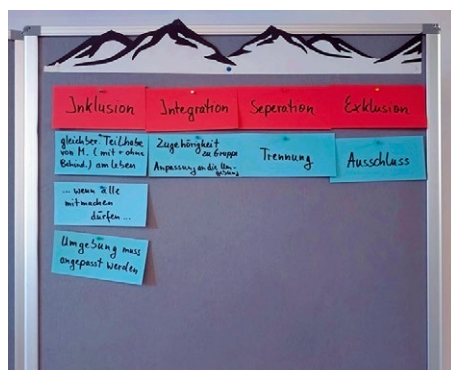 Inklusion
Integration
Seperation
Exklusion
gleichber. Teilhabe
von M. (mit + ohne
Behind.) am Leben
Zugehörigkeit
zu Gruppe
Anpassung an die Um-
gebung
Trennung
Ausschluss
... wenn alle
mitmachen
dürfen ...
Umgebung muss
angepasst werden